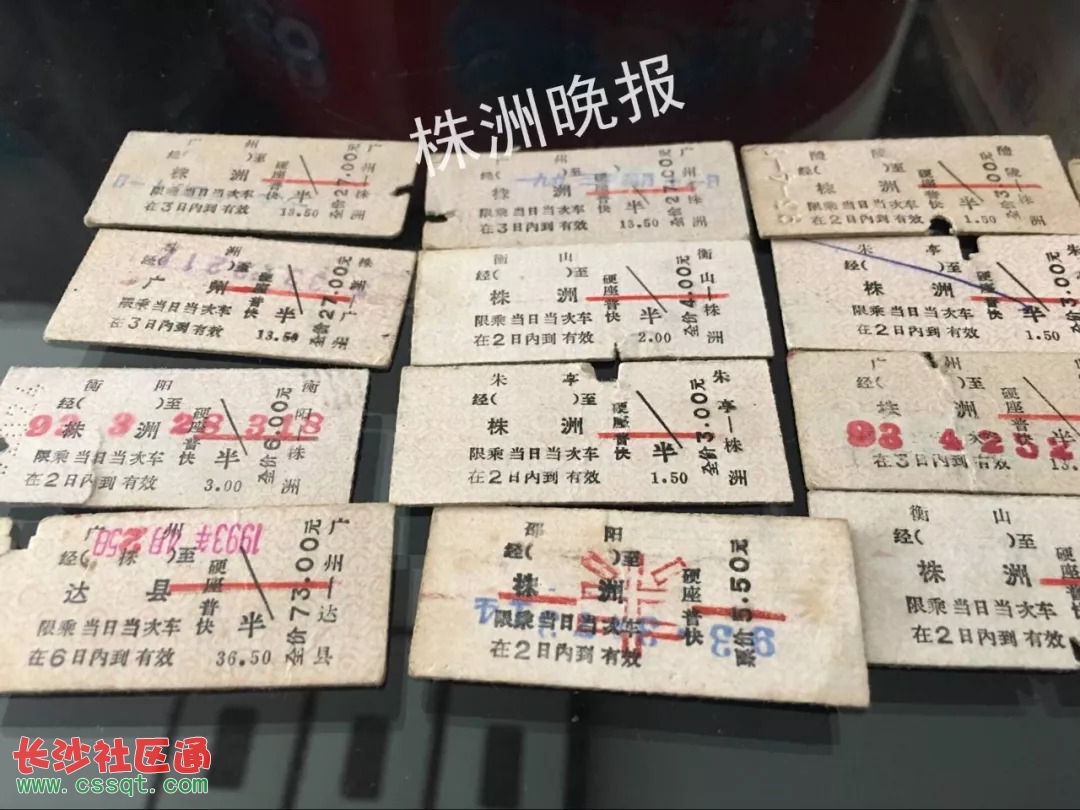 株洲晚报
广 州
经( )至
株 洲
硬座普快
限乘当日当次车
在3日内到有效
半
13.50
全价27.00元
广
株
洲
州
经( )至
株 洲
硬座普快
限乘当日当次车
在3日内到有效
半
13.50
全价27.00元
广
州
株
洲
醴 陵
经( )至
株 洲
硬座普快
限乘当日当次车
在2日内到有效
半
1.50
全价3.00元
醴
陵
株
洲
洲
经( )至
广 州
硬座普快
限乘当日当次车
在3日内到有效
半
13.50
全价27.00元
衡 山
经( )至
株 洲
硬座普快
限乘当日当次车
在2日内到有效
半
2.00
全价4.00元
衡
山
株
洲
朱 亭
经( )至
株 洲
硬座普快
限乘当日当次车
在2日内到有效
半
1.50
全价3.00元
衡 阳
经( )至
株 洲
93 3 28 318
硬座普快
限乘当日当次车
在2日内到有效
半
3.00
全价6.00元
衡
阳
株
洲
朱 亭
经( )至
株 洲
硬座普快
限乘当日当次车
在2日内到有效
半
1.50
全价3.00元
朱
亭
株
洲
广 州
经( )至
株 洲
93 4 252
硬座普
限乘当日
在3日内到有效
半
广 州
经( 株 )至
达 县
硬座普快
限乘当日当次车
在6日内到有效
半
36.50
全价73.00元
广
州
达
县
邵 阳
经( )至
株 洲
硬座普快
限乘当日当次车
在2日内到有效
票价5.50元
93
衡 山
经( )至
株 洲
硬座普快
限乘当日当次车
在2日内到有效
半
长沙社区通
www.cssqt.com